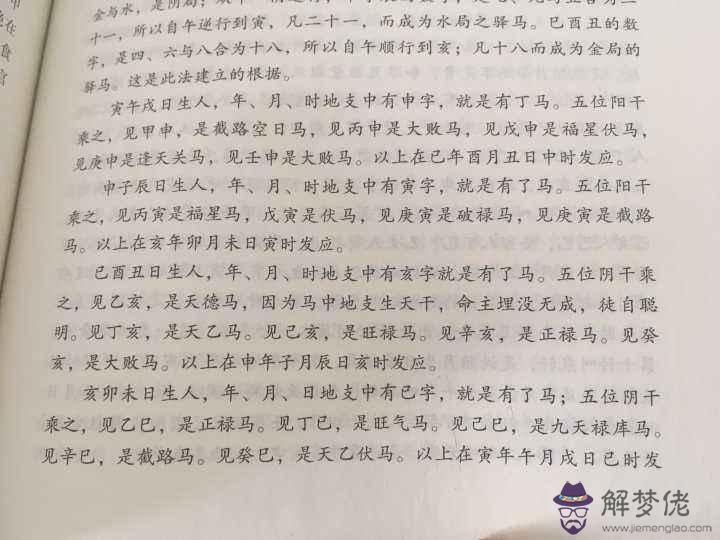 金与水，是阴局；
十一，所以自午逆行到寅，凡二十一，而成为水局之驿马。巳酉丑的数
字，是四、六与八合为十八，所以自午顺行到亥；凡十八而成为金局的
驿马。这是此法建立的根据。
寅午戌日生人，年、月、时地支中有申字，就是有丁马。五位阳干
乘之，见甲申，是截路空日马，见丙申是大败马，见戊申是福星伏马，
见庚申是逢天关马，见壬申是大败马。以上在巳年酉月丑日申时发应。
申子辰日生人，年、月、时地支中有寅字，就是有了马。五位阳干
乘之，见丙寅是福星马，戊寅是伏马，见庚寅是破禄马，见庚寅是截路
马。以上在亥年卯月未日寅时发应。
巳酉丑日生人，年、月、时地支中有亥字就是有了马。五位阴干乘
之，见乙亥，是天德马，因为马中地支生天干，命主埋没无成，徒自聪
明。见丁亥，是天乙马。见己亥，是旺禄马。见辛亥，是正禄马。见癸
亥，是大败马。以上在申年子月辰日亥时发应。
亥卯未日生人，年、月、日地支中有巳字，就是有了马；五位阴干
乘之，见乙巳，是正禄马。见丁巳，是旺气马。见己巳，是九天禄库马。
见辛巳，是截路马。见癸巳，是天乙伏马。以上在寅年午月戌日巳时发
解梦佬
www.jiemenglao.com